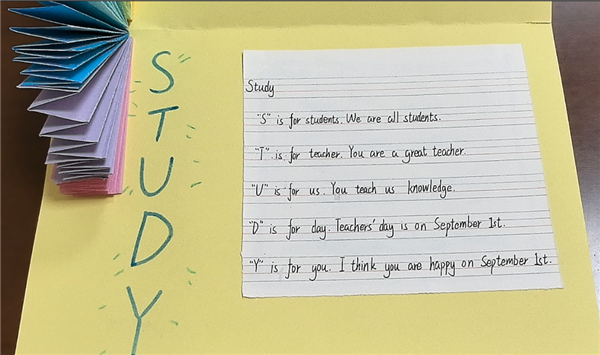 STUDY
Study
"S" is for students. We are all students.
"T" is for teacher. You are a great teacher.
"U" is for us. You teach us knowledge.
"D" is for day. Teachers' day is on September 1st.
"Y" is for you. I think you are happy on September 1st.